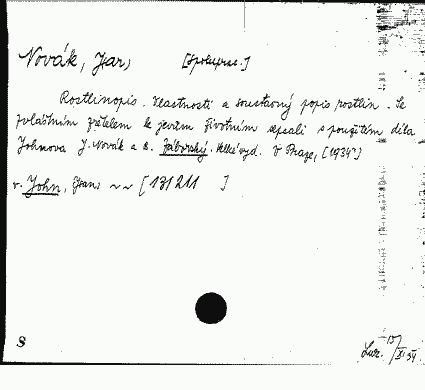 Novák, Jan, [Spoluprac.]
Rostlinopis. Vlastnosti a soustavný popis rostlin. Se
zvláštním zřetelem ke jevům životním sepsali s použitím díla
Johnova J. Novák a B. Záborský. Velké vyd. V Praze, [1934?]
v. John, Hans ~~ [131211 ]
8
15/XI 54